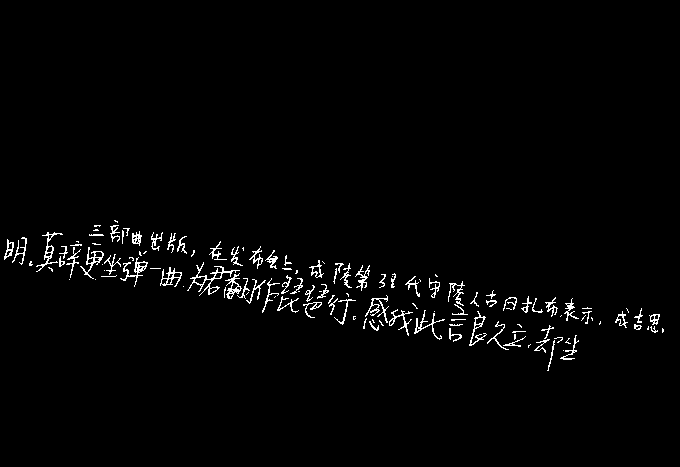 三部曲出版，在发布会上，成陵第38代守陵人古日扎布表示，成吉思
明。莫辞更坐弹一曲，为君翻作琵琶行。感我此言良久立，却坐